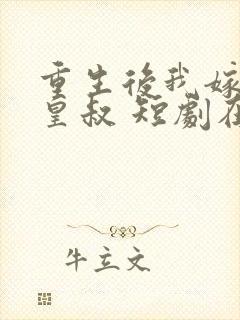 重生後我嫁
皇叔 短劇在
牛立文